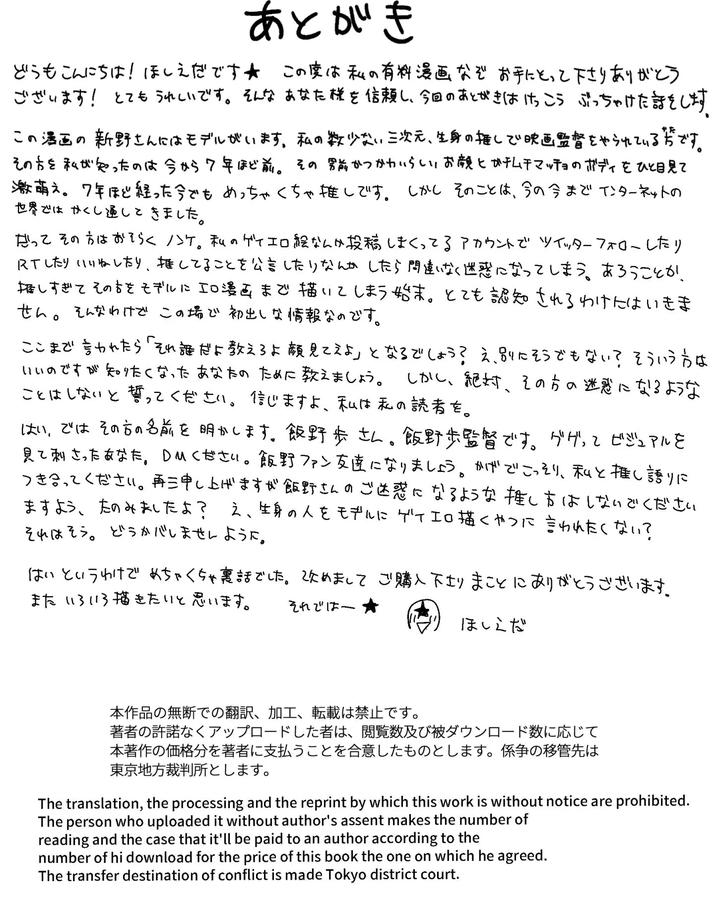 あとがき
どうもこんにちは！ほしえだです★ この度は私の有料漫画なぞ お手にとって下さりありがとう
ございます！ とてもうれしいです。そんな あなた様を信頼し、今回のあとがきはけっこう ぶっちゃけた話をします。
この漫画の 新野さんにはモデルがいます。私の数少ない三次元、生身の推しで映画監督をやられている方です。
その方を私が知ったのは今から7年ほど前。その 男前かつかわいらしいお顔とガチムチマッチョのボディをひと目見て
激萌え。7年ほど経った今でも めっちゃくちゃ推しです。 しかし そのことは、今の今まで インターネットの
世界では かくし通して きました。
だって その方は おそらく ノンケ。私のゲイエロ絵なんか投稿しまくってる アカウントで ツイッターフォローしたり
RTしたり いいねしたり、推してることを公言したりなんか したら間違いなく迷惑になってしまう。あろうことか、
推しすぎて その方をモデルに エロ漫画 まで 描いてしまう始末。とても認知 されるわけにはいきま
せん。そんなわけで この場で 初出しな情報なのです。
ここまで 言われたら「それ誰だよ教えろよ 顔見てえよ」となるでしょう？ え、別にそうでもない？ そういう方は
いいのですが 知りたくなった あなたの ために 教えましょう。 しかし、絶対、その方の 迷惑になるような
ことはしないと 誓ってください。信じますよ、私は私の読者を。
はい、では その方の名前を 明かします。飯野 歩 さん。飯野歩監督です。 ググって ビジュアルを
見て刺さったあなた。DMください。飯野ファン友達になりましょう。かげでこっそり、私と推し語りに
つき合ってください。再三申し上げますが 飯野さんの ご迷惑に なるような 推し方は しないでください
ますよう、たのみましたよ？ え、生身の人をモデルに ゲイエロ描くやつに 言われたくない？
それはそう。どうかバレませんように。
はい というわけで めちゃくちゃ裏話でした。改めまして ご購入下さり まことに ありがとうございます。
また いろいろ描きたいと思います。 それではー ★ ほしえだ
本作品の無断での翻訳、加工、転載は禁止です。
著者の許諾なくアップロードした者は、閲覧数及び被ダウンロード数に応じて
本著作の価格分を著者に支払うことを合意したものとします。係争の移管先は
東京地方裁判所とします。
The translation, the processing and the reprint by which this work is without notice are prohibited.
The person who uploaded it without author's assent makes the number of
reading and the case that it'll be paid to an author according to the
number of hi download for the price of this book the one on which he agreed.
The transfer destination of conflict is made Tokyo district court.